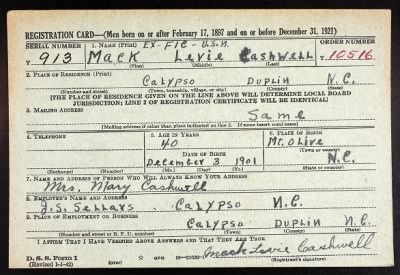 REGISTRATION CARD—(Men born on or after February 17, 1897 and on or before December 31, 1921)
SERIAL NUMBER 1. NAME (Print) EX-F1C-U.S.N. ORDER NUMBER
T 913 Mack Levie Cashwell T 10516
(First) (Middle) (Last)
2. PLACE OF RESIDENCE (Print)
CALYPSO DUPLIN N.C.
(Number and street) (Town, township, village, or city) (County) (State)
[THE PLACE OF RESIDENCE GIVEN ON THE LINE ABOVE WILL DETERMINE LOCAL BOARD
JURISDICTION; LINE 2 OF REGISTRATION CERTIFICATE WILL BE IDENTICAL]
3. MAILING ADDRESS
Same
[Mailing address if other than place indicated on line 2. If same insert word same]
4. TELEPHONE 5. AGE IN YEARS 6. PLACE OF BIRTH
40 Mt. Olive
DATE OF BIRTH (Town or county)
December 3 1901 N.C.
(Exchange) (Number) (Mo.) (Day) (Yr.) (State or country)
7. NAME AND ADDRESS OF PERSON WHO WILL ALWAYS KNOW YOUR ADDRESS
Mrs. Mary Cashwell
8. EMPLOYER'S NAME AND ADDRESS
J.S. Sellars CALYPSO N.C.
9. PLACE OF EMPLOYMENT OR BUSINESS
CALYPSO DUPLIN N.C.
(Number and street or R. F. D. number) (Town) (County) (State)
I AFFIRM THAT I HAVE VERIFIED ABOVE ANSWERS AND THAT THEY ARE TRUE.
D. S. S. Form 1
(Revised 1-1-42) (over) Mack Levie Cashwell